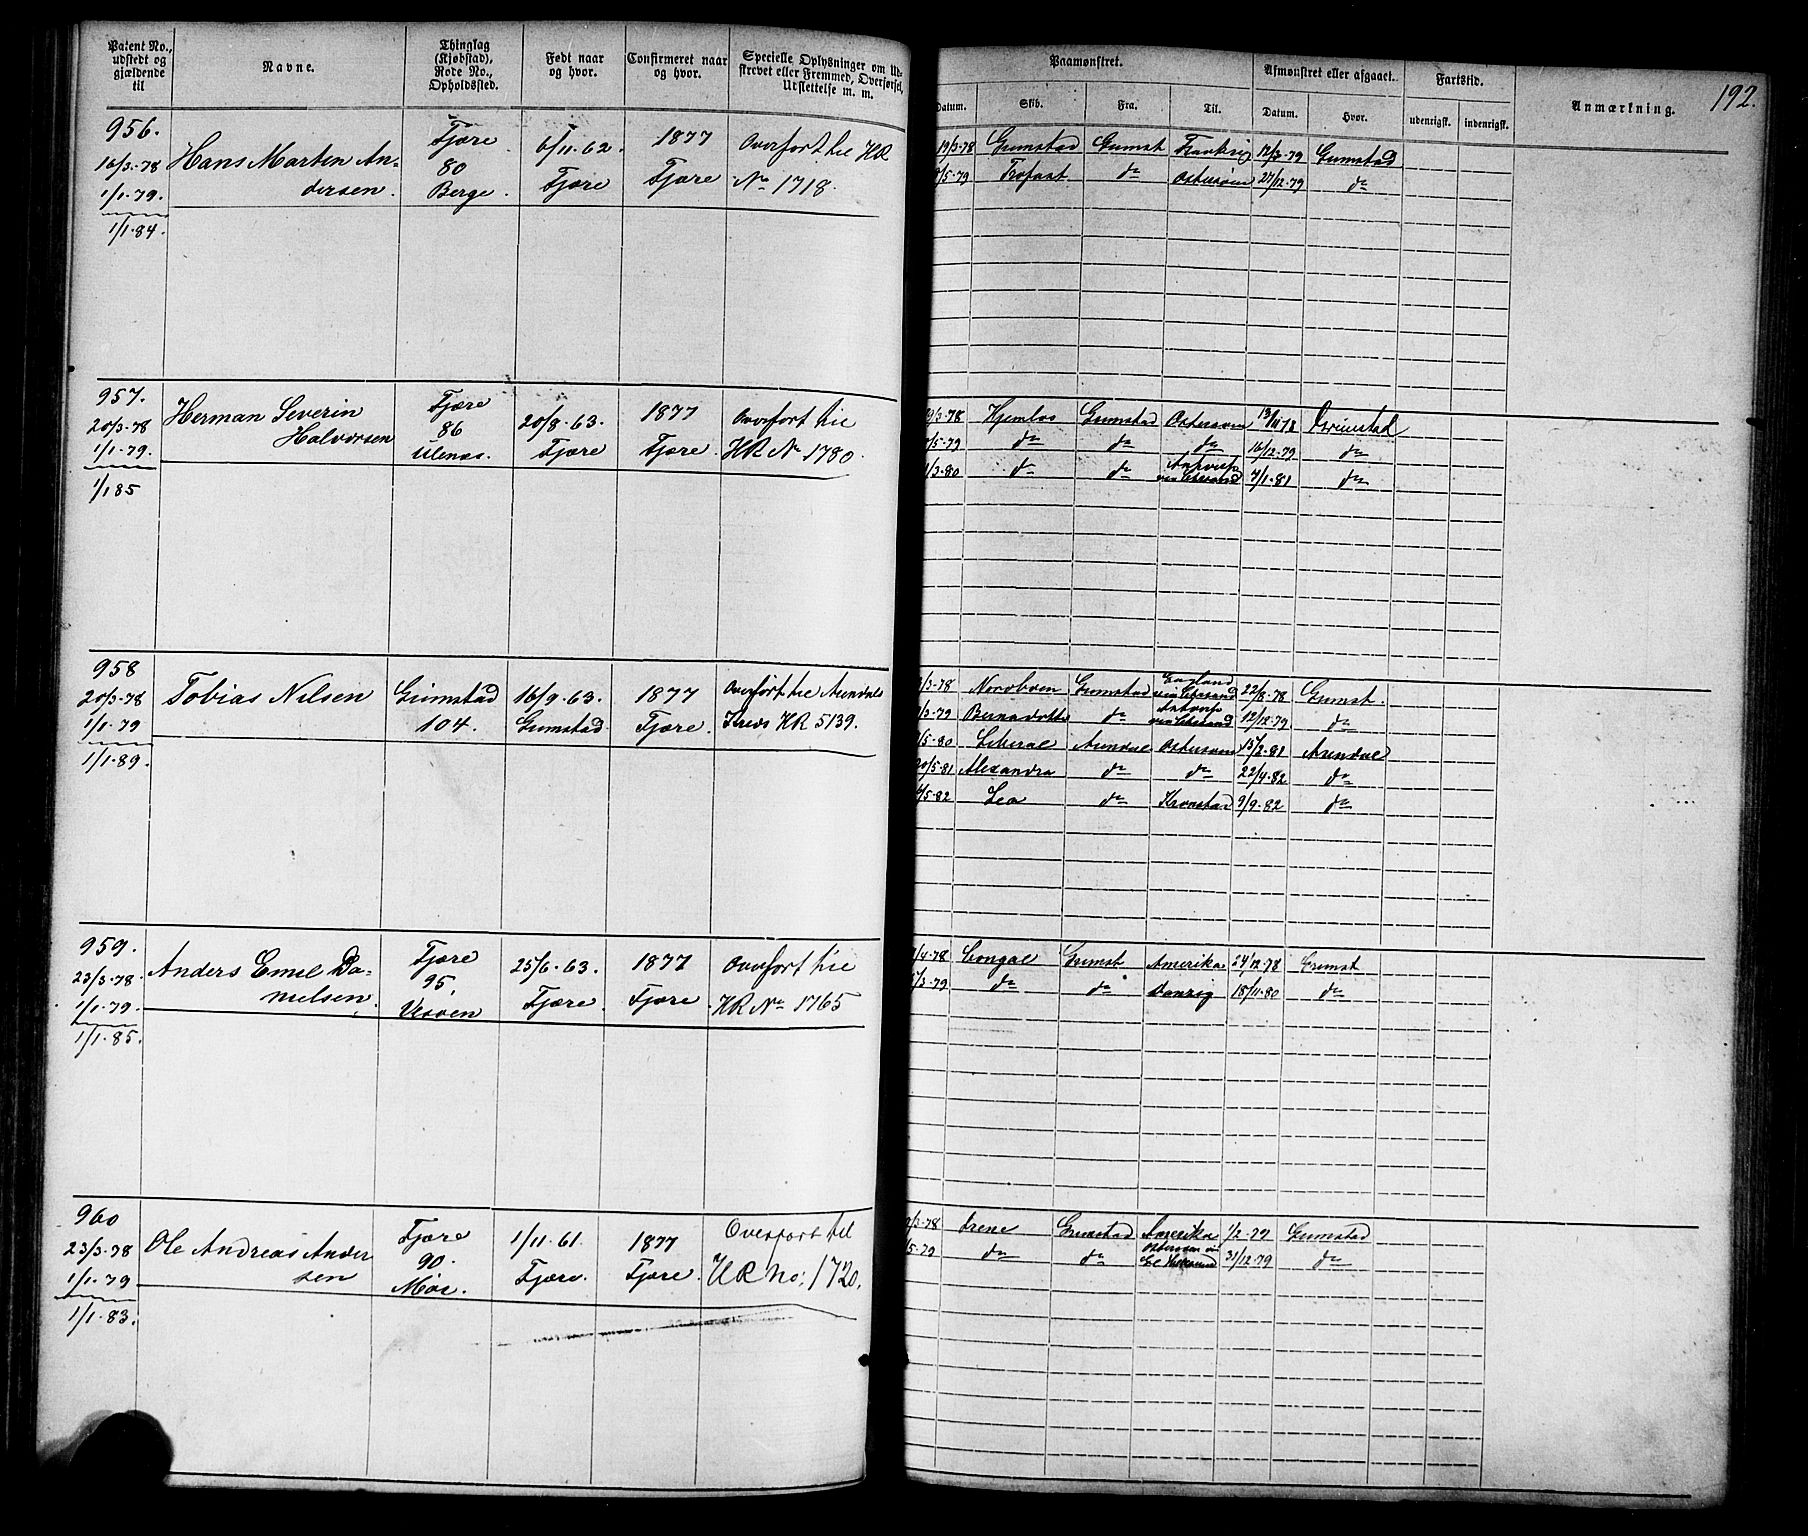 Patent No., udstedt og gjældende til
Navne.
Thinglag (Kjøbstad), Rode No., Opholdssted.
Født naar og hvor.
Confirmeret naar og hvor.
Specielle Oplysninger om Udskrevet eller Fremmed, Overførsel, Udslettelse m. m.
Paamønstret.
Afmønstret eller afgaaet.
Fartstid.
Anmærkning.
192.
Datum.
Skib.
Fra.
Til.
Datum.
Hvor.
udenrigsk.
indenrigsk.
956.
16/3-78
1/1-79.
1/1-84.
Hans Marten An-
dersen.
Fjære
80
Berge.
6/11-62.
Fjære
1877
Fjære
Overført til HR
No 1718.
19/3-78 Grimstad Grimst 17/3-79 Grimstad
/5-79 Trofast do Østersøen 27/12-79 do
957.
20/3-78
1/1-79.
1/1 85
Herman Severin
Halvorsen
Fjære
86
Ulenes.
20/8-63.
Fjære
1877
Fjære.
Overført til
HR No 1780.
19/3-78 Hjemlos Grimstad Østersøen 13/11 78 Grimstad
/5-79 do do do 16/12-79 do
1/3-80 do do 4/1-81 do
958
20/3-78
1/1-79
1/1-89.
Tobias Nilsen
Grimstad
104.
16/9-63.
Grimstad
1877
Fjære.
Overført til Arendals
Kreds HR 5139.
/3-78 Nordboen Grimstad England 22/8-78 Grimst.
/3-79 Bernadotte do 12/12-79 do
/5-80 Liberal Arendal Østersøen 15/2-81 Arendal
20/5-81 Alexandra do do 22/4-82 do
/5-82 Leo do Kronstad 9/9-82 do
959.
23/3-78
1/1-79.
1/1-85.
Anders Emil Da-
nielsen.
Fjære
95.
Vessøen
25/6-63.
Fjære.
1877
Fjære
Overført til
HR No 1765
/4-78 Gongal Grimst Amerika 24/12-78 Grimst
/3-79 do do Danzig 18/11-80 do
960
23/3-78
1/1-79
1/1-83.
Ole Andreas Ander
sen
Fjære
90.
Moe.
1/11-61.
Fjære.
1877
Fjære.
Overført til
HR No: 1720.
/3-78 Irene Grimstad Amerika 1/2-79 Grimstad
/5-79 do do Østersøen 31/12-79 do